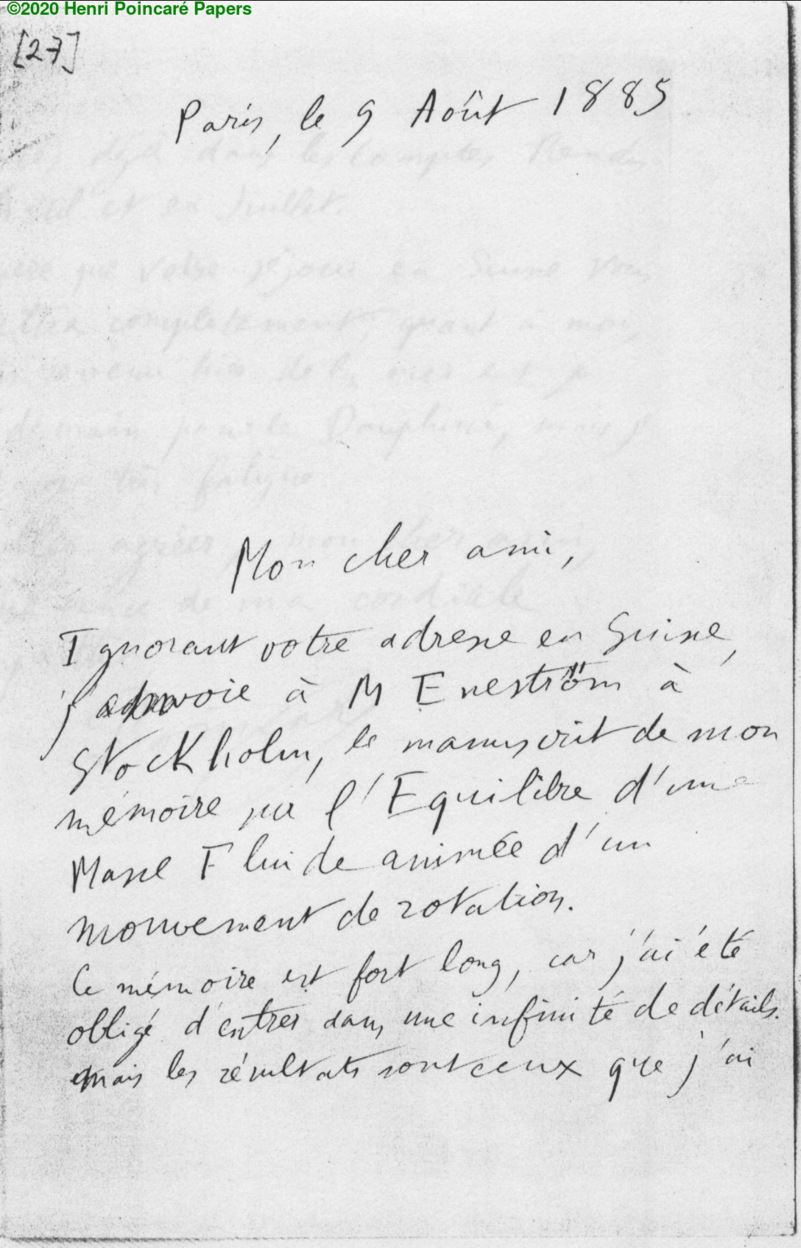 ©2020 Henri Poincaré Papers
[27]
Paris, le 9 Août 1885
Mon cher ami,
Ignorant votre adresse en Suisse,
j'envoie à M Eneström à
Stockholm, le manuscrit de mon
mémoire sur l'Equilibre d'une
Masse Fluide animée d'un
mouvement de rotation.
Ce mémoire est fort long, car j'ai été
obligé d'entrer dans une infinité de détails.
mais les résultats sont ceux que j'ai